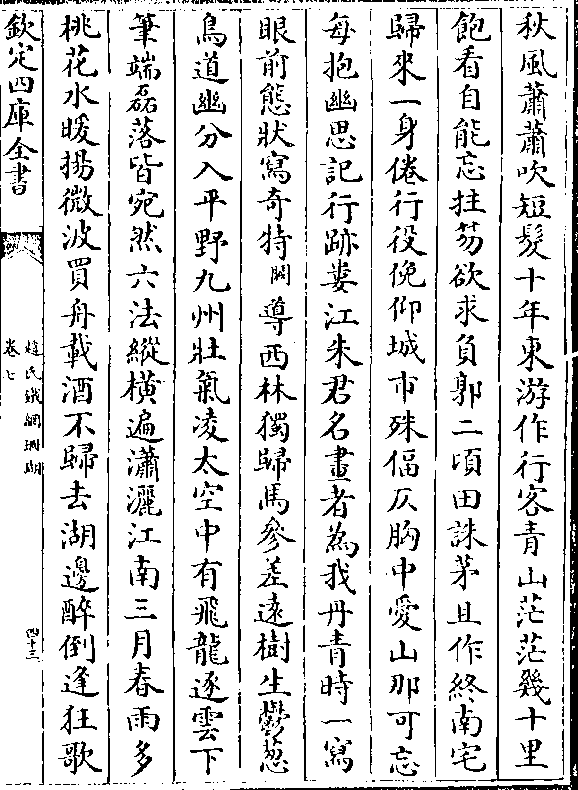 秋風蕭蕭吹短髮十年東游作行客青山茫茫幾十里
飽看自能忘拄笏欲求負郭二頃田誅茅且作終南宅
歸來一身倦行役俛仰城市殊偪仄胸中愛山那可忘
每抱幽思記行跡婁江朱君名畫者為我丹青時一寫
眼前態狀寫奇特闕導西林獨歸馬參差遠樹生鬱葱
鳥道幽分入平野九州壯氣凌太空中有飛龍逐雲下
筆端磊落皆宛然六法縱橫遍瀟灑江南三月春雨多
桃花水暖揚微波買舟載酒不歸去湖邊醉倒逢狂歌
欽定四庫全書
趙氏鐵網珊瑚
卷七
四十三